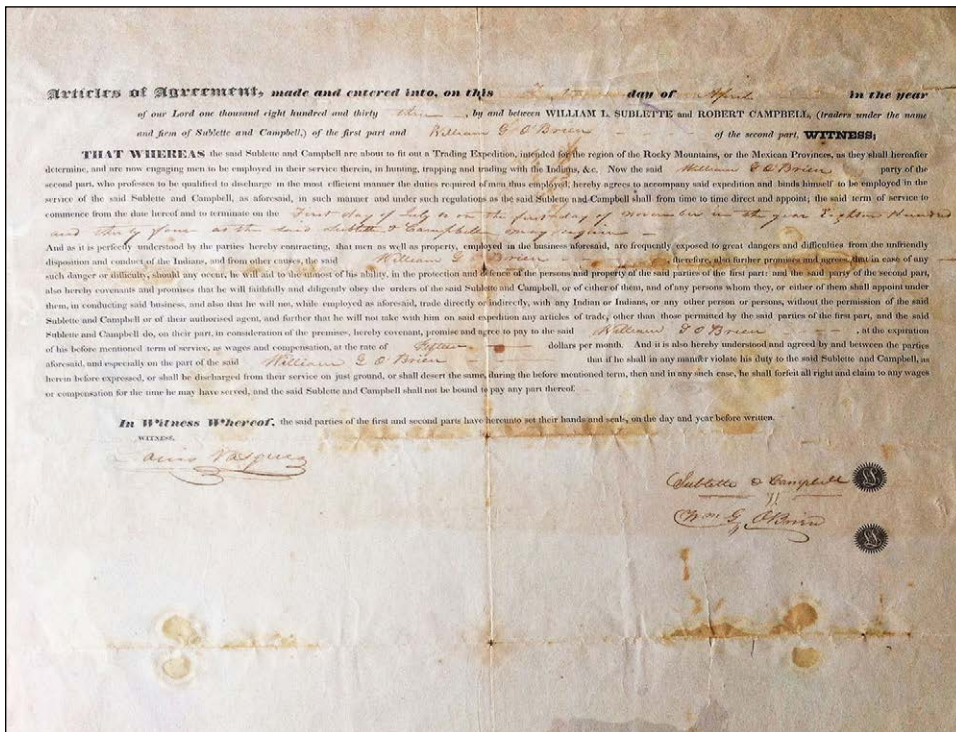 Articles of Agreement, made and entered into, on this day of April in the year
of our Lord one thousand eight hundred and thirty , by and between WILLIAM L. SUBLETTE and ROBERT CAMPBELL, (traders under the name
and firm of Sublette and Campbell,) of the first part and William G O'Brien of the second part, WITNESS;
THAT WHEREAS the said Sublette and Campbell are about to fit out a Trading Expedition, intended for the region of the Rocky Mountains, or the Mexican Provinces, as they shall hereafter
determine, and are now engaging men to be employed in their service therein, in hunting, trapping and trading with the Indians, &c. Now the said William G O'Brien party of the
second part, who professes to be qualified to discharge in the most efficient manner the duties required of men thus employed, hereby agrees to accompany said expedition and binds himself to be employed in the
service of the said Sublette and Campbell, as aforesaid, in such manner and under such regulations as the said Sublette and Campbell shall from time to time direct and appoint; the said term of service to
commence from the date hereof and to terminate on the First day of July or on the first day of November in the year Eighteen Hundred
and thirty four as the said Sublette & Campbell may require
And as it is perfectly understood by the parties hereby contracting, that men as well as property, employed in the business aforesaid, are frequently exposed to great dangers and difficulties from the unfriendly
disposition and conduct of the Indians, and from other causes, the said William G O'Brien , therefore, also further promises and agrees, that in case of any
such danger or difficulty, should any occur, he will aid to the utmost of his ability, in the protection and defence of the persons and property of the said parties of the first part: and the said party of the second part,
also hereby covenants and promises that he will faithfully and diligently obey the orders of the said Sublette and Campbell, or of either of them, and of any persons whom they, or either of them shall appoint under
them, in conducting said business, and also that he will not, while employed as aforesaid, trade directly or indirectly, with any Indian or Indians, or any other person or persons, without the permission of the said
Sublette and Campbell or of their authorised agent, and further that he will not take with him on said expedition any articles of trade, other than those permitted by the said parties of the first part, and the said
Sublette and Campbell do, on their part, in consideration of the premises, hereby covenant, promise and agree to pay to the said William G O'Brien , at the expiration
of his before mentioned term of service, as wages and compensation, at the rate of fifteen dollars per month. And it is also hereby understood and agreed by and between the parties
aforesaid, and especially on the part of the said William G O'Brien that if he shall in any manner violate his duty to the said Sublette and Campbell, as
herein before expressed, or shall be discharged from their service on just ground, or shall desert the same, during the before mentioned term, then and in any such case, he shall forfeit all right and claim to any wages
or compensation for the time he may have served, and the said Sublette and Campbell shall not be bound to pay any part thereof.
In Witness Whereof, the said parties of the first and second parts have hereunto set their hands and seals, on the day and year before written.
WITNESS,
Louis Vasquez
Sublette & Campbell
Wm G O'Brien